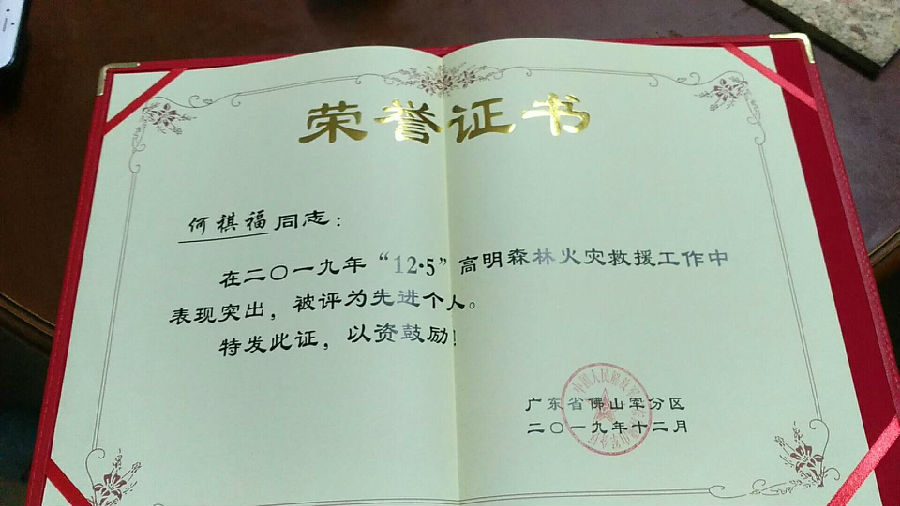 荣誉证书
何祺福同志：
在二〇一九年“12·5”高明森林火灾救援工作中
表现突出，被评为先进个人。
特发此证，以资鼓励！
广东省佛山军分区
二〇一九年十二月